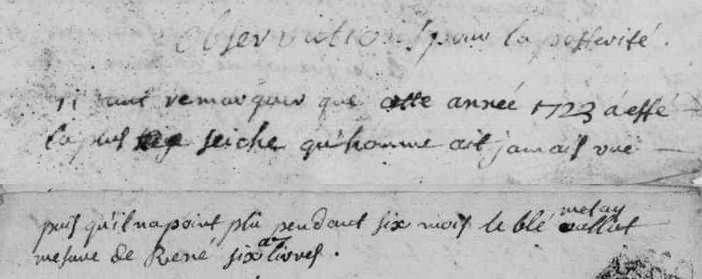 Observations pour la posterité.
il faut remarquer que cette année 1723 a esté
la plus seiche qu'homme ait jamais vue
puis qu'il na point plû pendant six mois le blé metay valloit
mesure de Rene six livres.